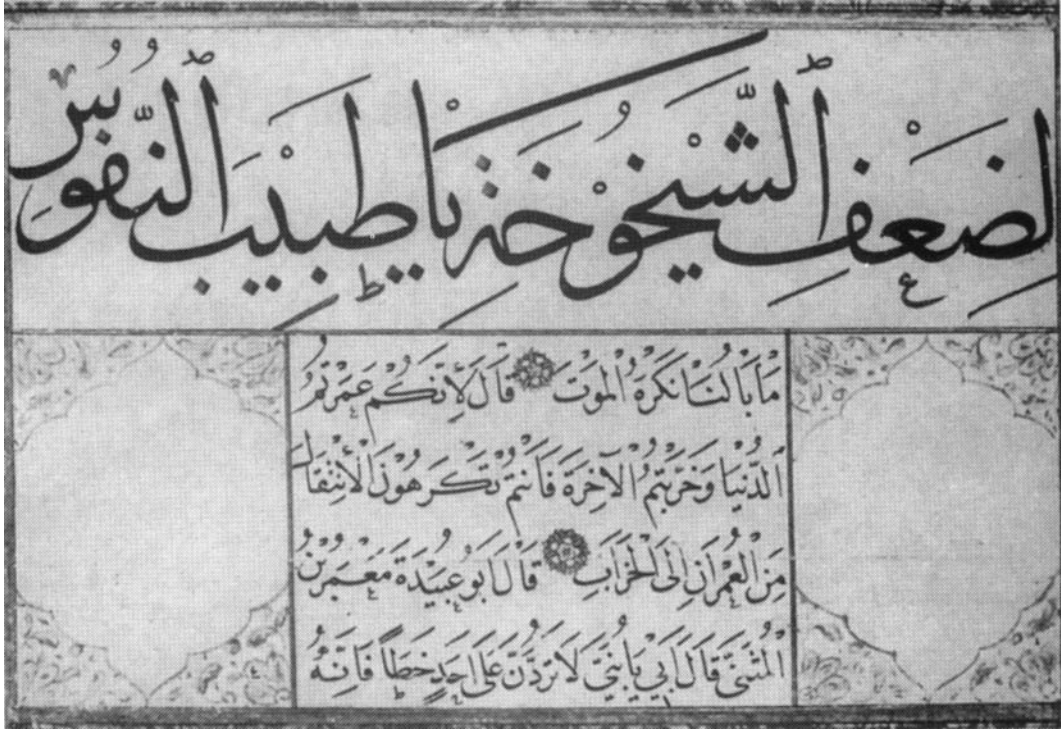 لِضَعْفِ ٱلشَّيْخُوْخَةِ يَا طَبِيْبَ ٱلنُّفُوْسِ
مَا بَالُنَا نَكْرَهُ الْمَوْتَ قَالَ لِأَنَّكُمْ عَمَرْتُمُ
ٱلدُّنْيَا وَخَرَّبْتُمُ الْآخِرَةَ فَأَنْتُمْ تَكْرَهُوْنَ الْاِنْتِقَالَ
مِنَ الْعُمْرَانِ اِلَى الْخَرَابِ قَالَ اَبُو عُبَيْدَةَ مَعْمَرُ بْنُ
الْمُثَنَّى قَالَ اَبِي يَا بُنَيَّ لَا تَرُدَّنَّ عَلَى اَحَدٍ خَطَأً فَاِنَّهُ